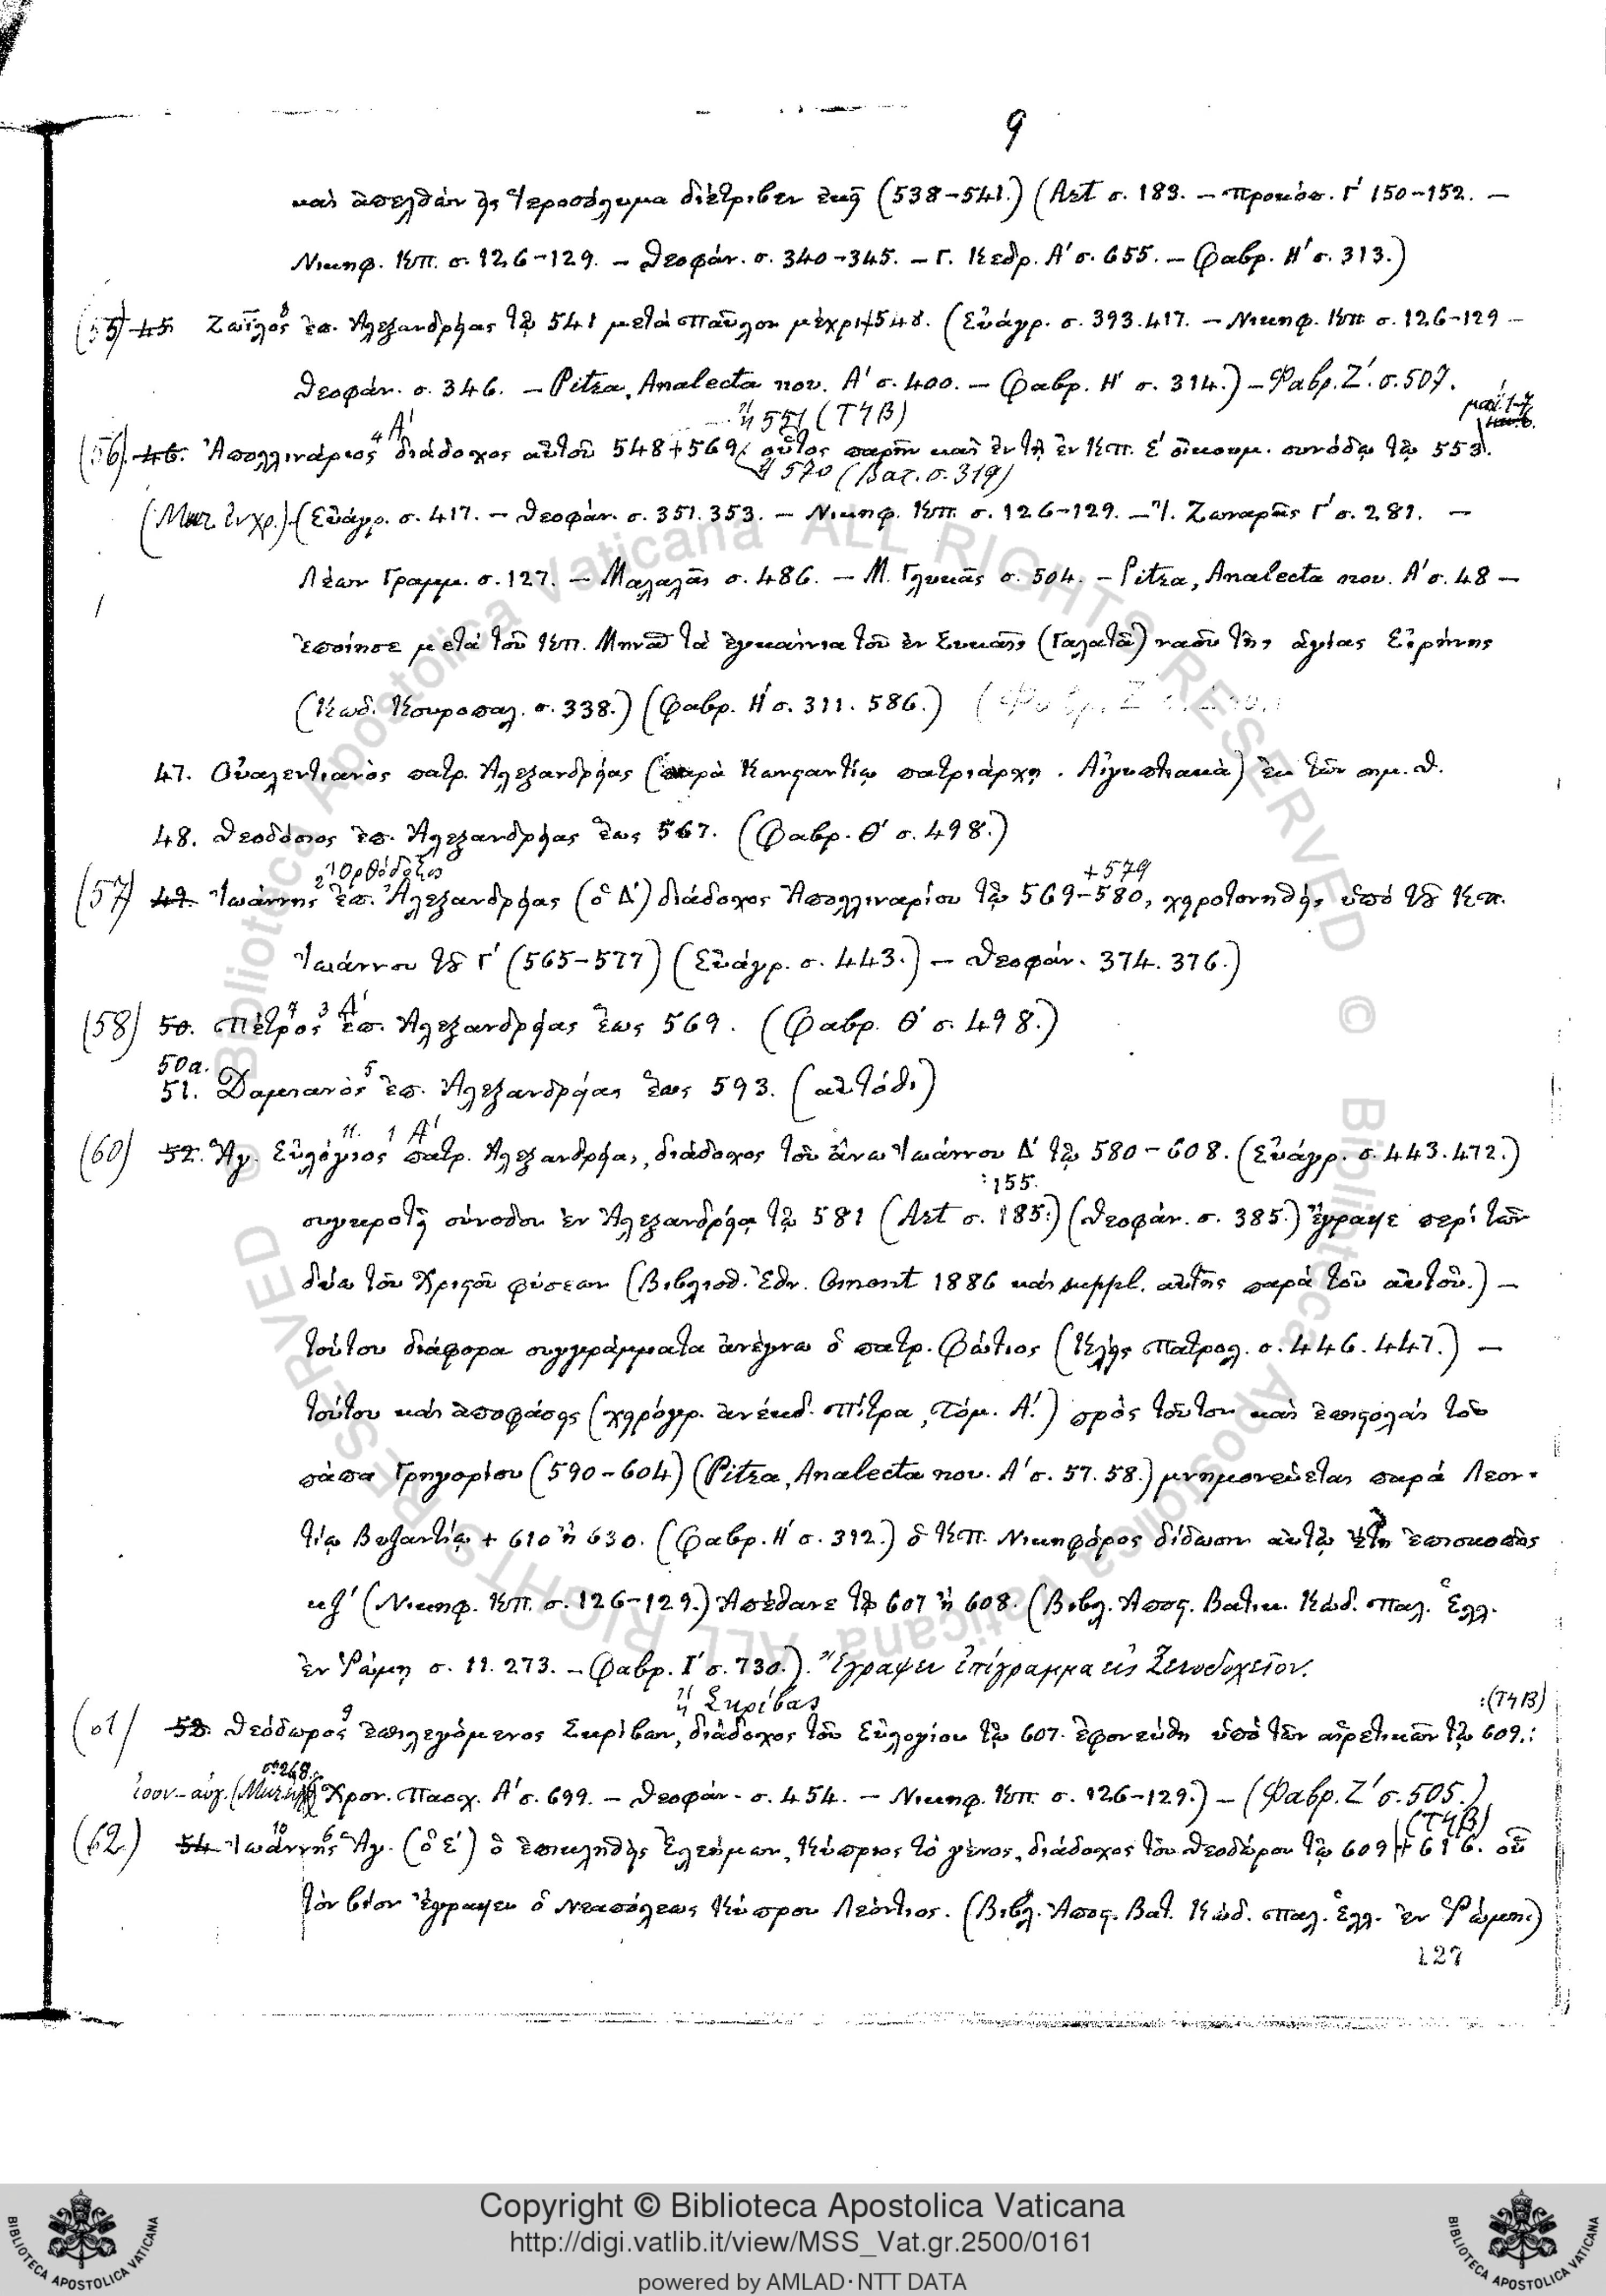 9
καὶ ἀπελθὼν εἰς Ἱεροσόλυμα διέτριβεν ἐκεῖ (538-541.) (Art σ. 183. — Προκόπ. Γ΄ 150-152. —
Νικηφ. Κπ. σ. 126-129. — Θεοφάν. σ. 340-345. — Γ. Κεδρ. Α΄ σ. 655. — Φαβρ. Η΄ σ. 313.)
(55) 45. Ζωΐλος ἐπ. Ἀλεξανδρείας τῷ 541 μετὰ Παῦλον μέχρι 548. (Εὐάγρ. σ. 393.417. — Νικηφ. Κπ σ. 126-129 —
Θεοφάν. σ. 346. — Pitra, Analecta nov. Α΄ σ. 400. — Φαβρ. Η΄ σ. 314.) — Φαβρ. Ζ΄. σ. 507.
ἢ 551 (ΤЧΒ)
(56) 46. Ἀπολλινάριος 4 Α΄ διάδοχος αὐτοῦ 548+569 οὗτος παρῆν καὶ ἐν τῇ ἐν Κπ. Ε΄ οἰκουμ. συνόδῳ τῷ 553.
ἢ 570 (Βατ. σ. 319)
(Εὐάγρ. σ. 417. — Θεοφάν. σ. 351.353. — Νικηφ. Κπ. σ. 126-129. — Ἰ. Ζωναρᾶς Γ΄ σ. 281. —
Λέων Γραμμ. σ. 127. — Μαλαλᾶς σ. 486. — Μ. Γλυκᾶς σ. 504. — Pitra, Analecta nov. Α΄ σ. 48 —
ἐποίησε μετὰ τοῦ Κπ. Μηνᾶ τὰ ἐγκαίνια τοῦ ἐν Συκαῖς (Γαλατᾷ) ναοῦ τῆς ἁγίας Εἰρήνης
(Κωδ. Κουροπαλ. σ. 338.) (Φαβρ. Η΄ σ. 311. 586.)
47. Οὐαλεντιανὸς πατρ. Ἀλεξανδρείας (παρὰ Κωνσταντίῳ πατριάρχῃ. Αἰγυπτιακὰ) ἐκ τῶν σημ. Θ.
48. Θεοδόσιος ἐπ. Ἀλεξανδρείας ἕως 567. (Φαβρ. Θ΄ σ. 498.)
2 Ὀρθόδοξος +579
(57) 49. Ἰωάννης ἐπ. Ἀλεξανδρείας (ὁ Δ΄) διάδοχος Ἀπολλιναρίου τῷ 569-580, χειροτονηθεὶς ὑπὸ τοῦ Κπ.
Ἰωάννου τοῦ Γ΄ (565-577) (Εὐάγρ. σ. 443.) — Θεοφάν. 374. 376.)
7 3 Δ΄
(58) 50. Πέτρος ἐπ. Ἀλεξανδρείας ἕως 569. (Φαβρ. Θ΄ σ. 498.)
50α.
51. Δαμιανὸς 5 ἐπ. Ἀλεξανδρείας ἕως 593. (αὐτόθι)
11. 1 Α΄
(60) 52. Ἅγ. Εὐλόγιος πατρ. Ἀλεξανδρείας, διάδοχος τοῦ ἄνω Ἰωάννου Δ΄ τῷ 580-608. (Εὐάγρ. σ. 443.472.)
:155.
συγκροτεῖ σύνοδον ἐν Ἀλεξανδρείᾳ τῷ 581 (Art σ. 185.) (Θεοφάν. σ. 385.) ἔγραψε περὶ τῶν
δύο τοῦ Χριστοῦ φύσεων (Βιβλιοθ. Ἐθν. Omont 1886 καὶ suppl. αὐτῆς παρὰ τοῦ αὐτοῦ.) —
τούτου διάφορα συγγράμματα ἀνέγνω ὁ πατρ. Φώτιος (Κελῆς Πατρολ. σ. 446.447.) —
τούτου καὶ ἀποφάσεις (χειρόγρ. ἀνέκδ. Πίτρα, Τόμ. Α΄.) πρὸς τοῦτον καὶ ἐπιστολαὶ τοῦ
πάπα Γρηγορίου (590-604) (Pitra, Analecta nov. Α΄ σ. 57. 58.) μνημονεύεται παρὰ Λεον-
τίῳ Βυζαντίῳ + 610 ἢ 630. (Φαβρ. Η΄ σ. 312.) ὁ Κπ. Νικηφόρος δίδωσιν αὐτῷ ἔτη ἐπισκοπῆς
κζ΄ (Νικηφ. Κπ. σ. 126-129.) Ἀπέθανε τῷ 607 ἢ 608. (Βιβλ. Ἀποστ. Βατικ. Κώδ. Παλ. Ἑλλ.
ἐν Ῥώμῃ σ. 11. 273. — Φαβρ. Ι΄ σ. 730.). Ἔγραψεν ἐπίγραμμα εἰς Ξενοδοχεῖον.
ἢ Σκρίβας :(ΤЧΒ)
(61) 53. Θεόδωρος 9 ἐπιλεγόμενος Σκρίβων, διάδοχος τοῦ Εὐλογίου τῷ 607. ἐφονεύθη ὑπὸ τῶν αἱρετικῶν τῷ 609.:
Χρον. Πασχ. Α΄ σ. 699. — Θεοφάν. σ. 454. — Νικηφ. Κπ. σ. 126-129.) — (Φαβρ. Ζ΄ σ. 505.)
10 6 (ΤЧΒ)
(62.) 54. Ἰωάννης Ἅγ. (ὁ Ε΄) ὁ ἐπικληθεὶς Ἐλεήμων, Κύπριος τὸ γένος, διάδοχος τοῦ Θεοδώρου τῷ 609 + 616. οὗ
τὸν βίον ἔγραψεν ὁ Νεαπόλεως Κύπρου Λεόντιος. (Βιβλ. Ἀποστ. Βατ. Κώδ. Παλ. Ἑλλ. ἐν Ῥώμῃ.)
127
© Biblioteca Apostolica Vaticana ALL RIGHTS RESERVED
Copyright © Biblioteca Apostolica Vaticana
http://digi.vatlib.it/view/MSS_Vat.gr.2500/0161
powered by AMLAD·NTT DATA
BIBLIOTECA APOSTOLICA VATICANA
BIBLIOTECA APOSTOLICA VATICANA